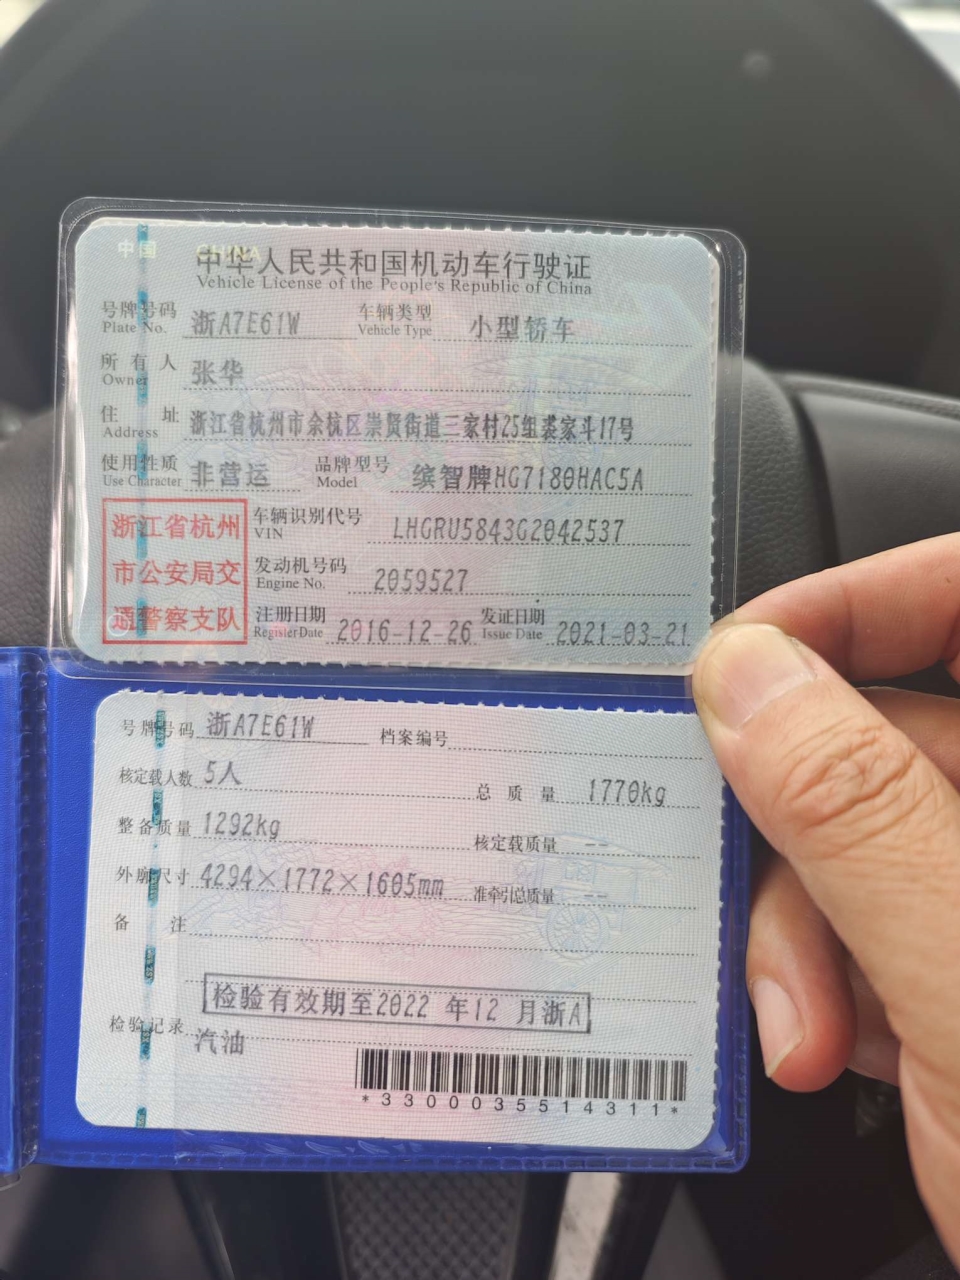 中国 CHINA
中华人民共和国机动车行驶证
Vehicle License of the People's Republic of China
号牌号码 浙A7E61W 车辆类型 小型轿车
Plate No. Vehicle Type
所有人 张华
Owner
住址 浙江省杭州市余杭区崇贤街道三家村25组裘家斗17号
Address
使用性质 非营运 品牌型号 缤智牌HG7180HAC5A
Use Character Model
浙江省杭州
市公安局交
通警察支队
车辆识别代号 LHGRU5843G2042537
VIN
发动机号码 2059527
Engine No.
注册日期 2016-12-26 发证日期 2021-03-21
Register Date Issue Date
号牌号码 浙A7E61W 档案编号
核定载人数 5人 总质量 1770kg
整备质量 1292kg 核定载质量 --
外廓尺寸 4294×1772×1605mm 准牵引总质量 --
备注
检验有效期至2022 年12 月浙A
检验记录
汽油
*3300035514311*